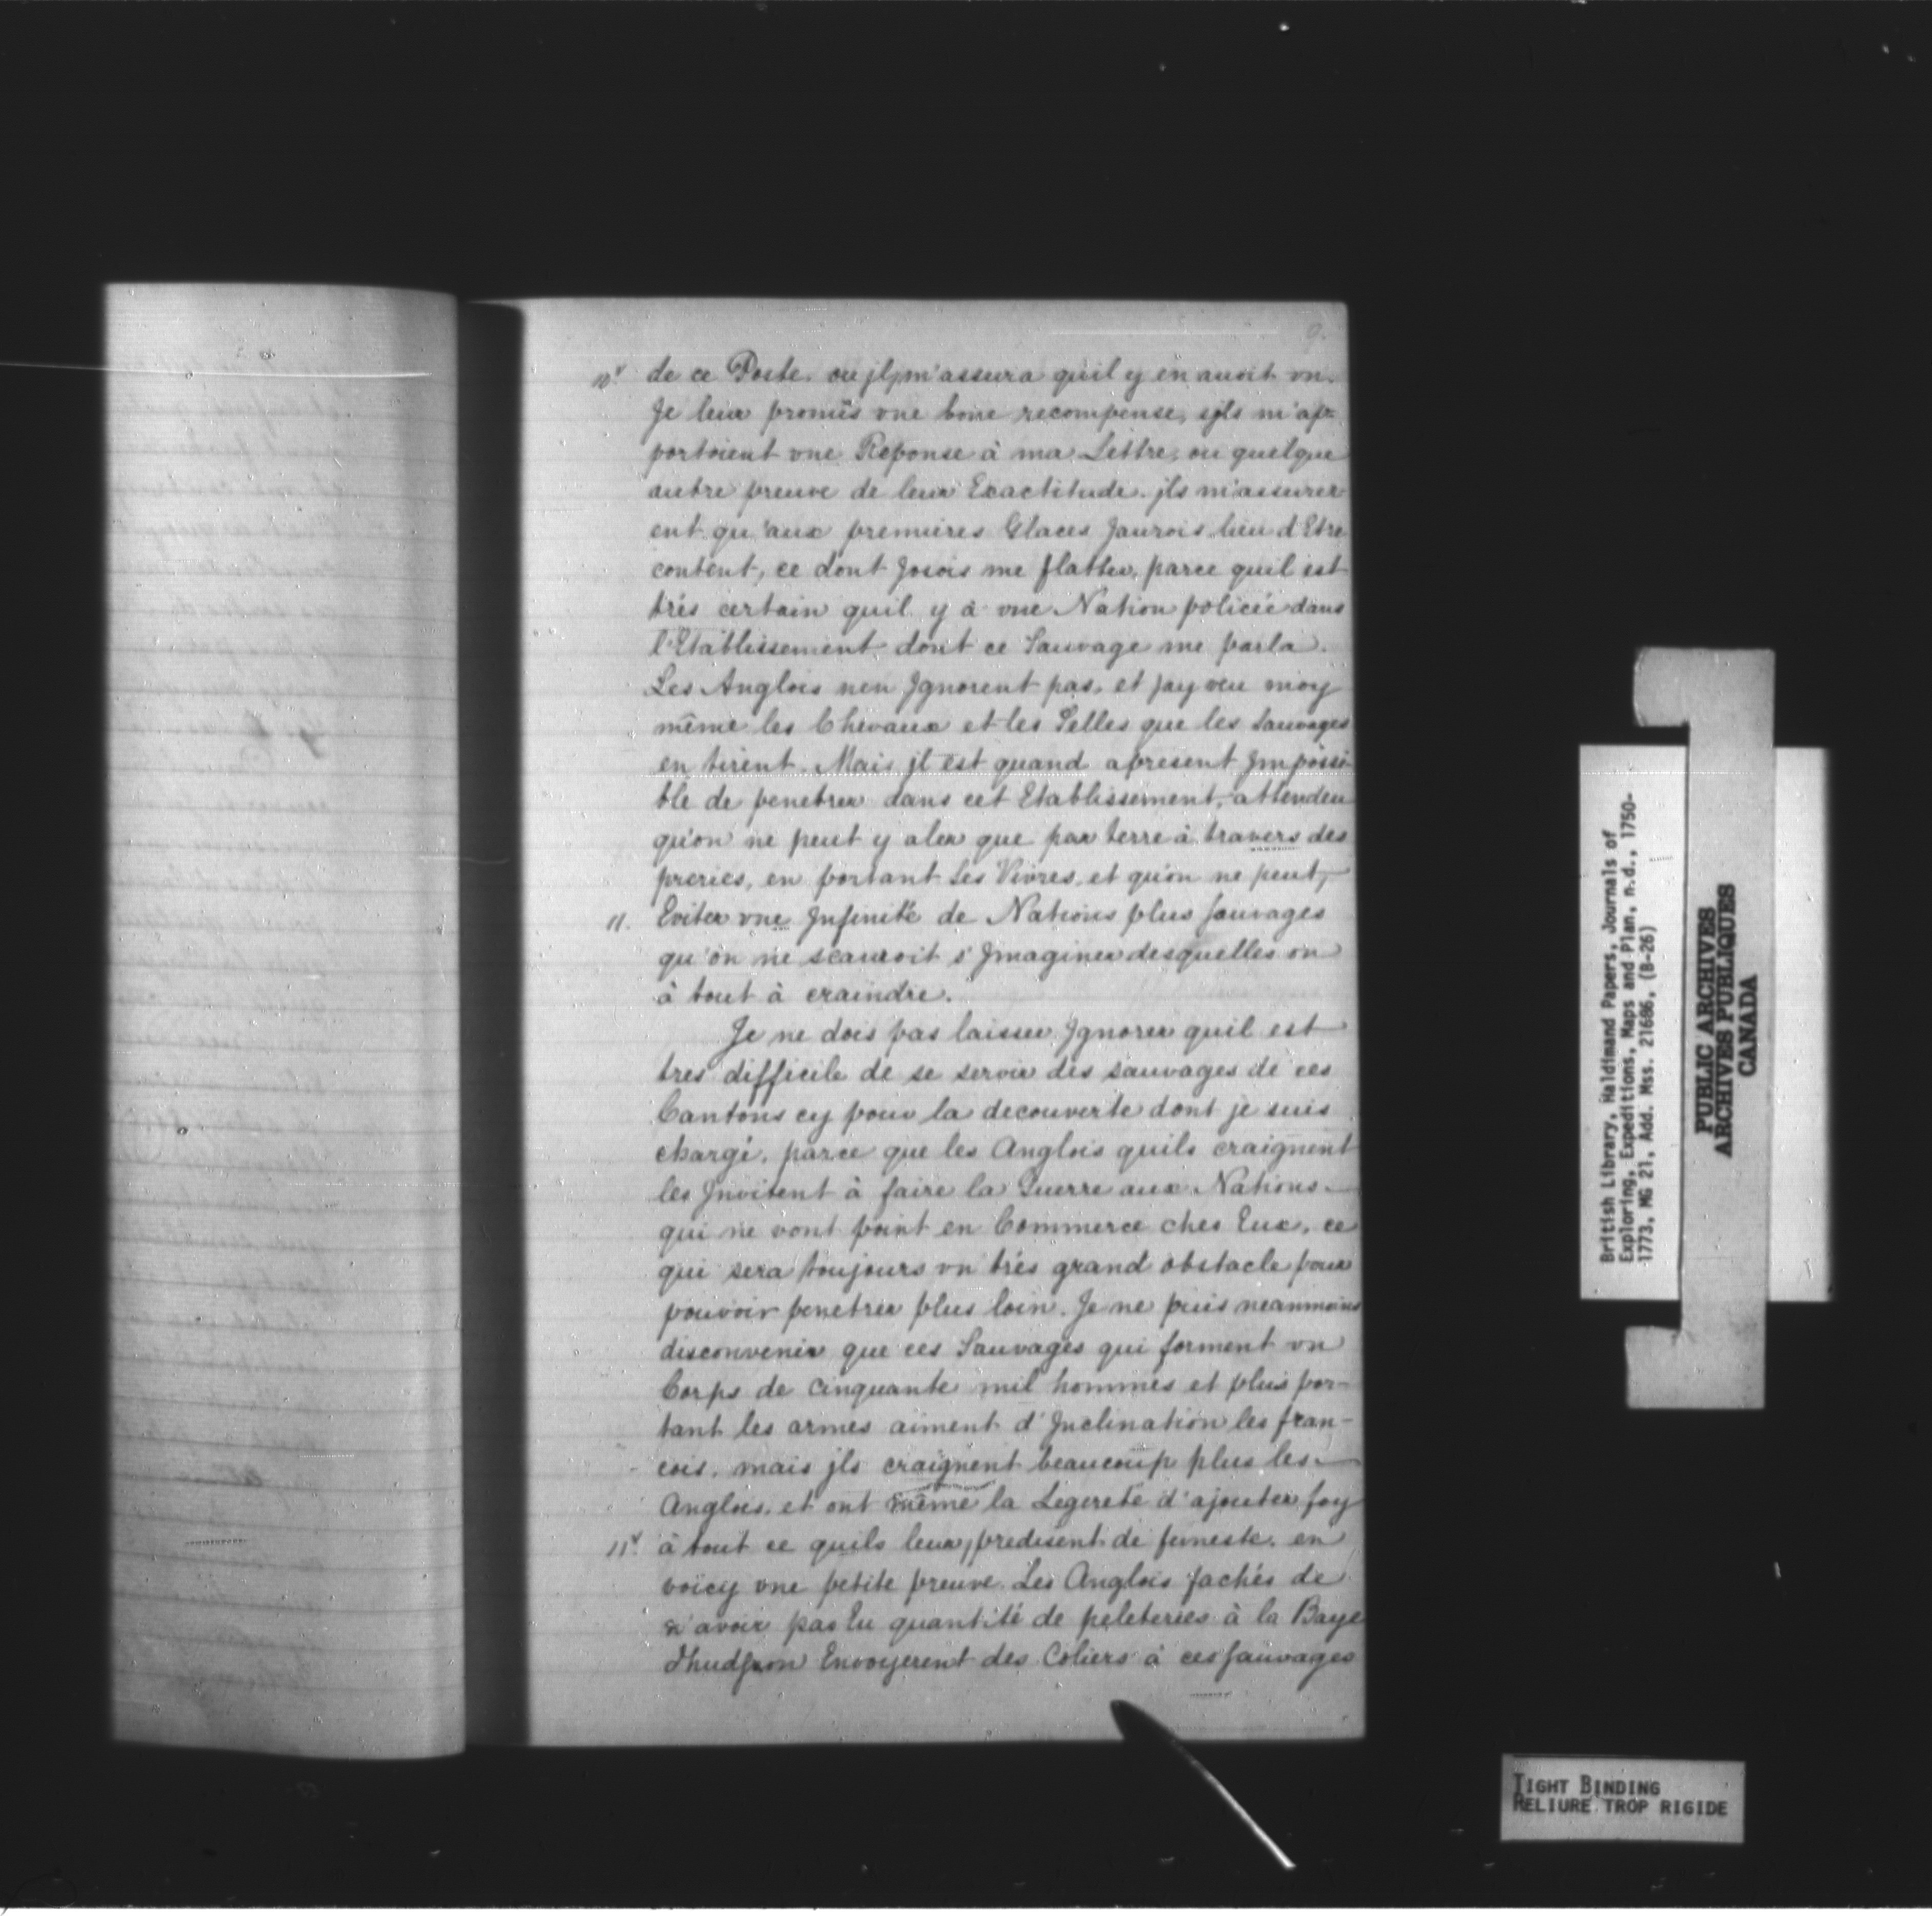 9.
10v de ce Poste. ou jl m'assura quil y en auoit vn.
Je leur promis vne bone recompense, sjls m'ap-
portoient vne Reponse à ma Lettre, ou quelque
autre preuve de leur Exactitude. jls m'assurer
ent qu'aux premieres Glaces Jaurois lieu d'Etre
content, ce dont Josois me flatter, parce quil est
trés certain quil y à vne Nation policée dans
l'Etablissement dont ce Sauvage me parla.
Les Anglois nen Jgnorent pas, et jay veu moy
même les Chevaux et les Selles que les Sauvages
en tirent. Mais jl est quand apresent Jmpossi-
ble de penetrer dans cet Etablissement, attendeu
qu'on ne peut y aler que par terre à travers des
preries, en portant Les Vivres, et qu'on ne peut,
11. Eviter vne Jnfinité de Nations plus sauvages
qu'on ne scauroit s'Jmaginer desquelles on
à tout à craindre.
Je ne dois pas laisser Jgnorer quil est
tres difficile de se servir des sauvages de ces
Cantons cy pour la decouverte dont je suis
chargé, parce que les Anglois quils craignent
les Jnvitent à faire la Guerre aux Nations
qui ne vont point en Commerce ches Eux, ce
qui sera toujours vn trés grand obstacle pour
pouvoir penetrer plus loin. Je ne puis neanmoins
disconvenir que ces Sauvages qui forment vn
Corps de Cinquante mil hommes et plus por-
tant les armes aiment d'Jnclination les fran-
cois, mais jls craignent beaucoup plus les
Anglois, et ont même la Legereté d'ajouter foy
11v. à tout ce quils leur predisent de funeste. en
voicy vne petite preuve. Les Anglois fachés de
n'avoir pas Eu quantité de peleteries à la Baye
d'hudson Envoyerent des Coliers à ces sauvages
British Library, Haldimand Papers, Journals of
Exploring, Expeditions, Maps and Plan, n.d., 1750-
1773, MG 21, Add. Mss. 21686, (B-26)
PUBLIC ARCHIVES
ARCHIVES PUBLIQUES
CANADA
TIGHT BINDING
RELIURE TROP RIGIDE